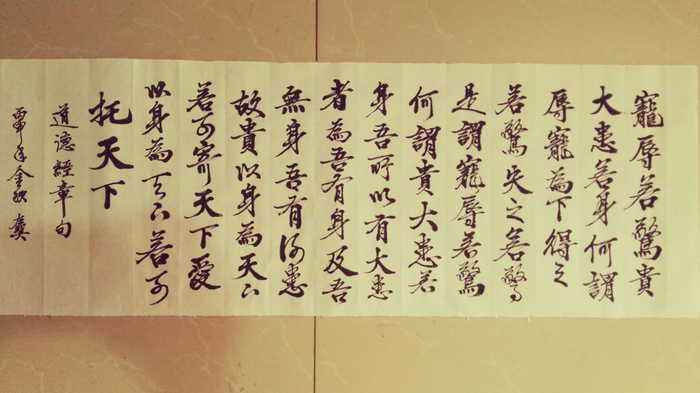 寵辱若驚貴
大患若身何謂
辱寵為下得之
若驚失之若驚
是謂寵辱若驚
何謂貴大患若
身吾所以有大患
者為吾有身及吾
無身吾有何患
故貴以身為天下
若可寄天下愛
以身為天下若可
托天下
道德經章句
年金秋